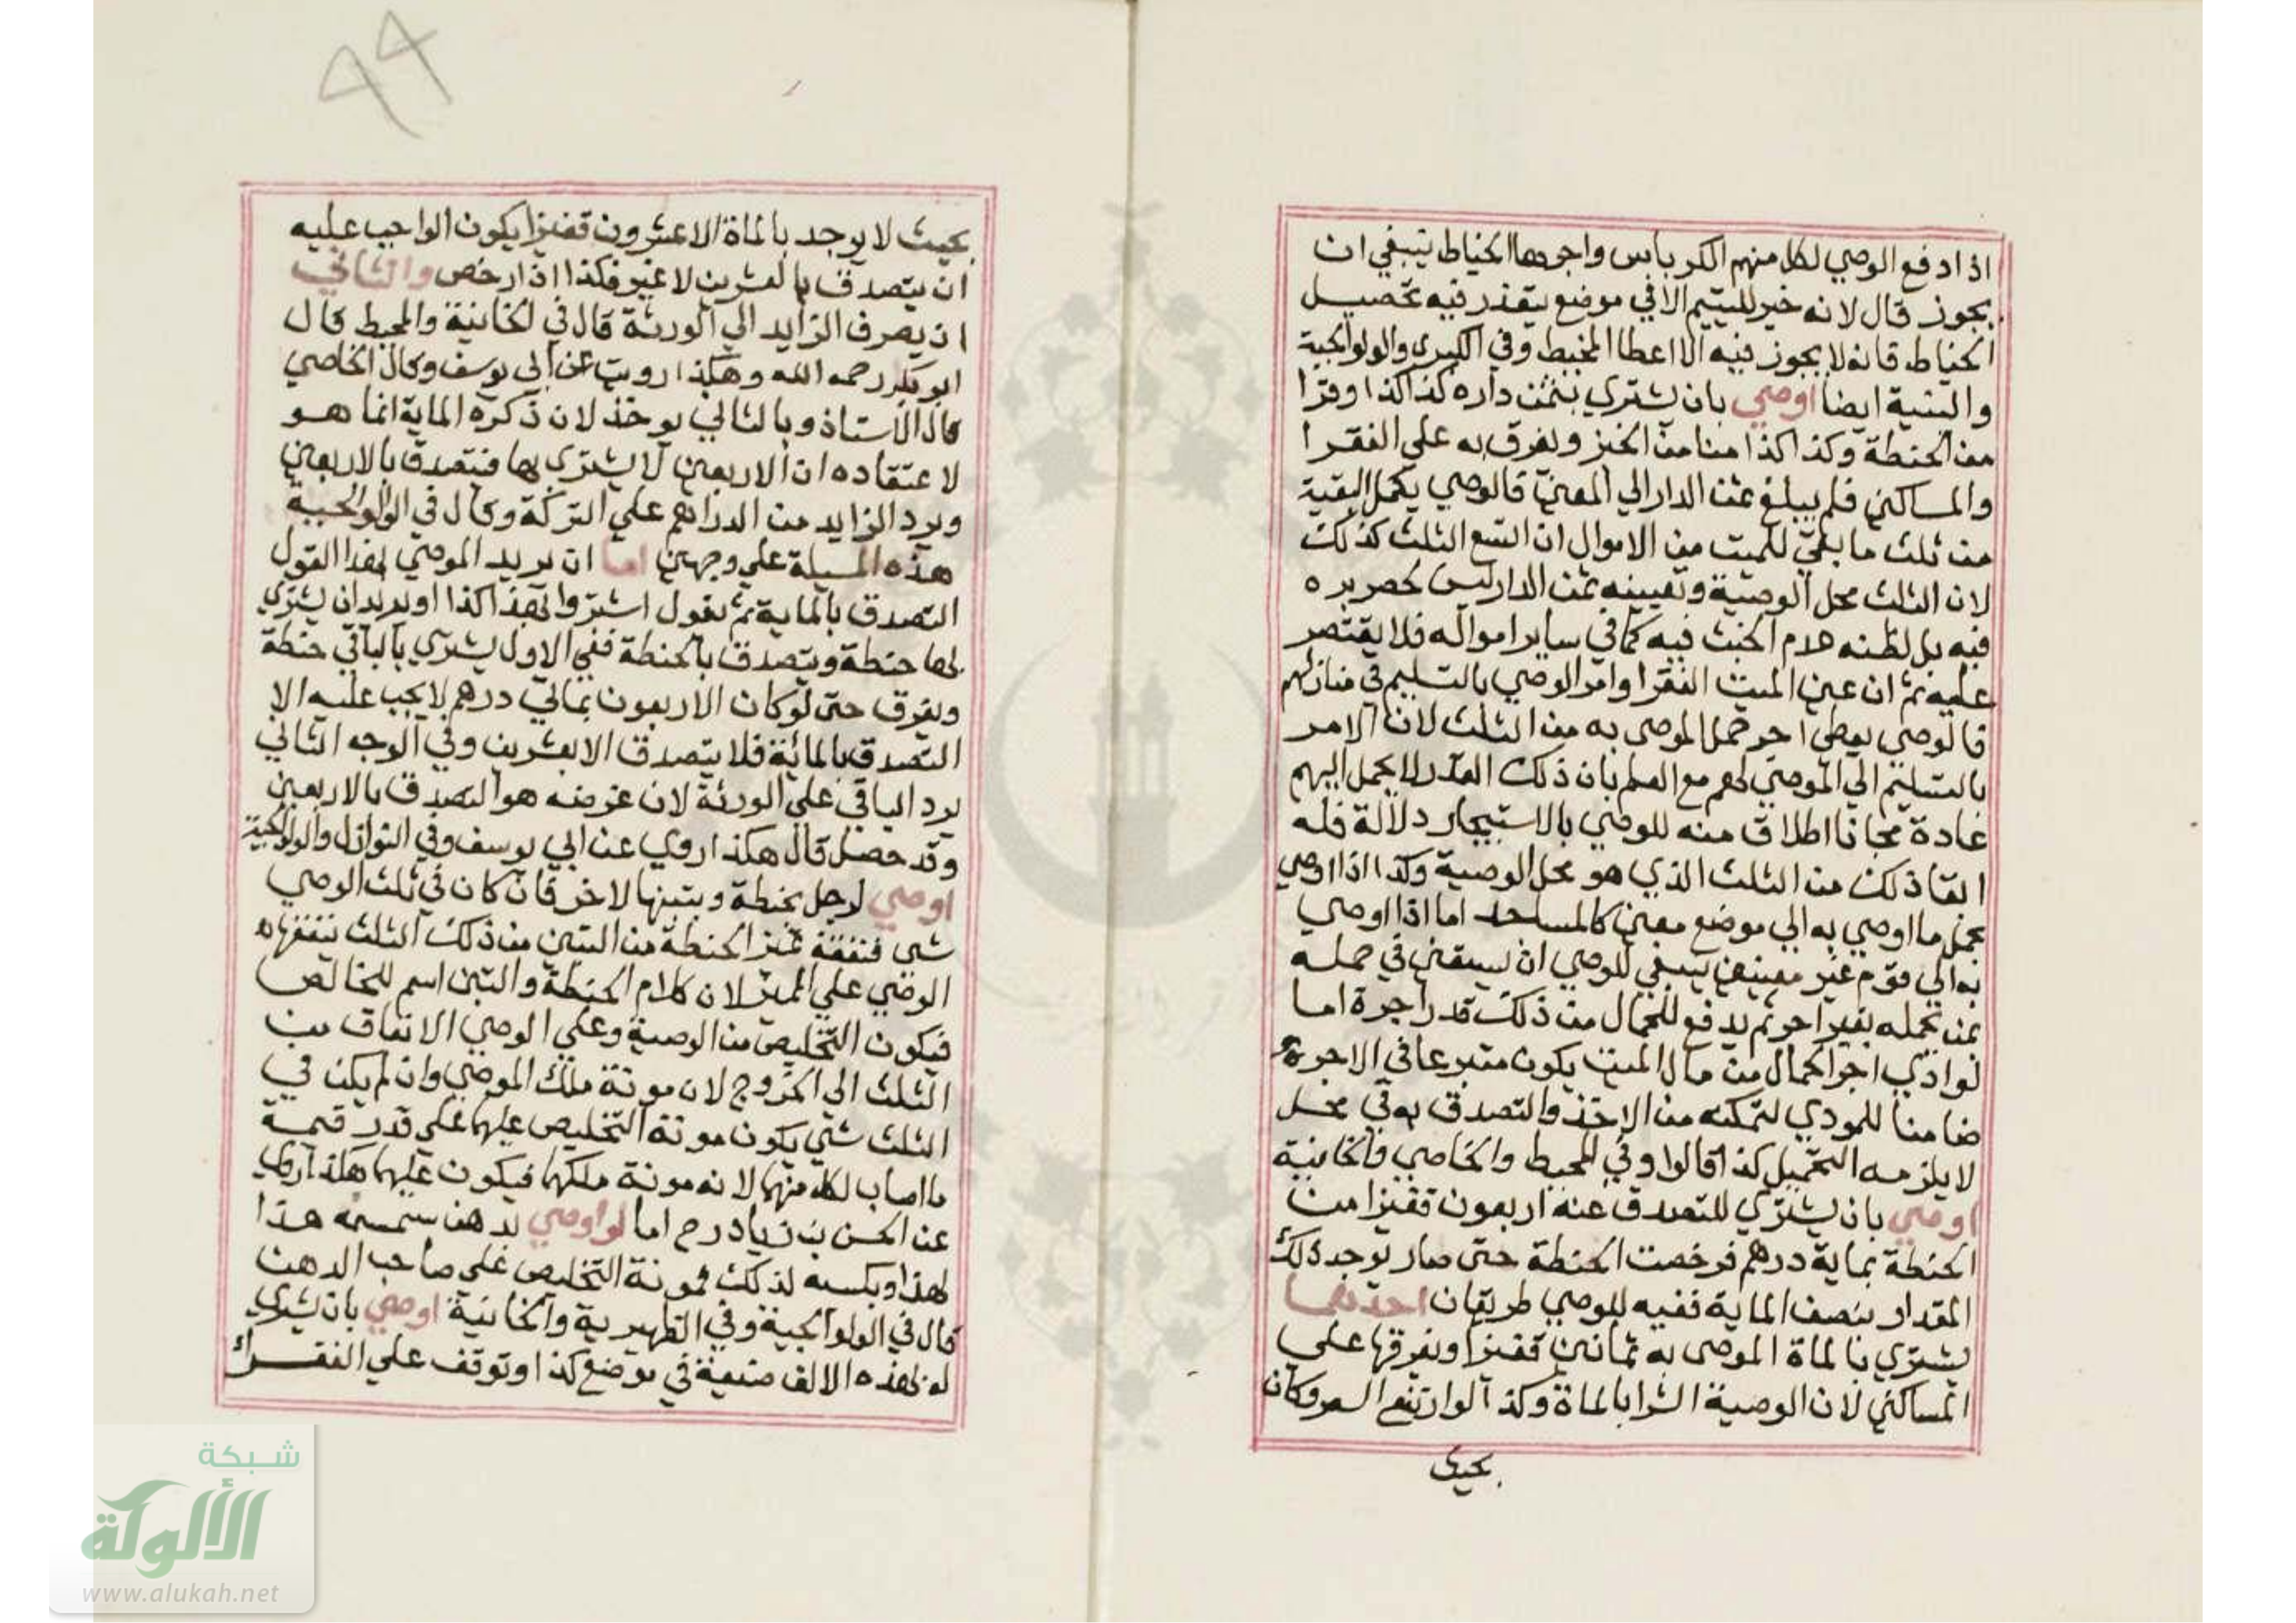 اذا دفع الوصي لكل منهم الكرباس واجر هذا الخياط ينبغي ان
يجوز قال لانه خير لليتيم الا في موضع يتعذر فيه تحصيل
الخياط فانه لا يجوز فيه الا اعطا المخيط وفي الكبرى والولوالجية
والينية ايضا اوصي بان يشتري بثمن داره كذا كذا وقرا
من الحنطة وكذا كذا منا من الخبز ويفرق به علي الفقرا
والمساكين فلم يبلغ ثمن الدار الي المعين فالوصي يكمل البقية
من ثلث ما بقي للميت من الاموال ان اتسع الثلث كذلك
لان الثلث محل الوصية وتعيينه ثمن الدار ليس لحصر بره
فيه بل لظنه عدم الخبث فيه كما في ساير امواله فلا يقتصر
عليه ثم ان عين الميت الفقرا وامر الوصي بالتسليم في منازلهم
فالوصي يعطي اجر حمل الموصي به من الثلث لان الامر
بالتسليم الي الموصي لهم مع العلم بان ذلك القدر لا يحمل اليهم
عادة مجانا اطلاق منه للوصي بالاستيجار دلالة فله
القا ذلك من الثلث الذي هو محل الوصية وكذا اذا اوصي
بحمل ما اوصي به الي موضع معين كالمساجد اما اذا اوصي
به الي قوم غير معينين ينبغي للوصي ان يستعين في حمله
بمن يحمله بغير اجر ثم يدفع للحمال من ذلك قدر اجرة اما
لو ادي اجر الحمال من مال الميت يكون متبرعا في الاجرة
ضامنا للمودي لتمكنه من الاخذ والتصدق به في محل
لا يلزمه التحميل كذا قالوا وفي المحيط والخاصي والخانية
اوصي بان يشتري للتصدق عنه اربعون قفيزا من
الحنطة بماية درهم فرخصت الحنطة حتى صار يوجد ذلك
المقدار بنصف الماية ففيه للوصي طريقان احدهما
يشتري بالماة الموصى به ثمانين قفيزا ويفرقها على
المساكين لان الوصية الشرا بالماة وكذا لو ارتفع السعر وكان
بحيث
٩٩
بحيث لا يوجد بالماة الا عشرون قفيزا يكون الواجب عليه
ان يتصدق بالعشرين لا غير فكذا اذا رخص والثاني
ان يصرف الزايد الي الورثة قال في الخانية والمحيط قال
ابو بكر رحمه الله وهكذا رويت عن ابي يوسف وقال الخاصي
قال الاستاذ وبالثاني يوخذ لان ذكره الماية انما هو
لاعتقاده ان الاربعين لا يشترى بها فيتصدق بالاربعين
ويرد الزايد من الدراهم علي التركة وقال في الولوالجية
هذه المسيلة علي وجهين اما ان يريد الموصي بهذا القول
التصدق بالماية ثم يقول اشتروا بهذا كذا او يريد ان يشتري
بها حنطة ويتصدق بالحنطة ففي الاول يشتري بالباقي حنطة
ويفرق حتى لو كان الاربعون بمايتي درهم لا يجب عليه الا
التصدق بالمائة فلا يتصدق الا بعشرين وفي الوجه الثاني
يرد الباقي علي الورثة لان غرضه هو التصدق بالاربعين
وقد حصل قال هكذا روي عن ابي يوسف وفي النوازل والولوالجية
اوصي لرجل بحنطة وبتبنها لاخر فان كان في ثلث الوصي
شي فنفقة تميز الحنطة من التبن من ذلك الثلث ينفقها
الوصي علي المميز لان كلام الحنطة والتبن اسم للخالص
فيكون التخليص من الوصية وعلي الوصي الانفاق من
الثلث الي الخروج لان مونة ملك الموصي وان لم يكن في
الثلث شي يكون مونة التخليص عليهما علي قدر قيمة
ما اصاب لكل منهما لانه مونة ملكهما فيكون عليهما هكذا روي
عن الحسن بن زياد رح اما لو اوصي بدهن سمسمه هذا
لهذا وبكسبه لذلك فمونة التخليص علي صاحب الدهن
قال في الولوالجية وفي الظهيرية والخانية اوصي بان يشتري
له بهذه الالف ضيعة في موضع كذا وتوقف علي الفقراء
شبكة
الألوكة
www.alukah.net